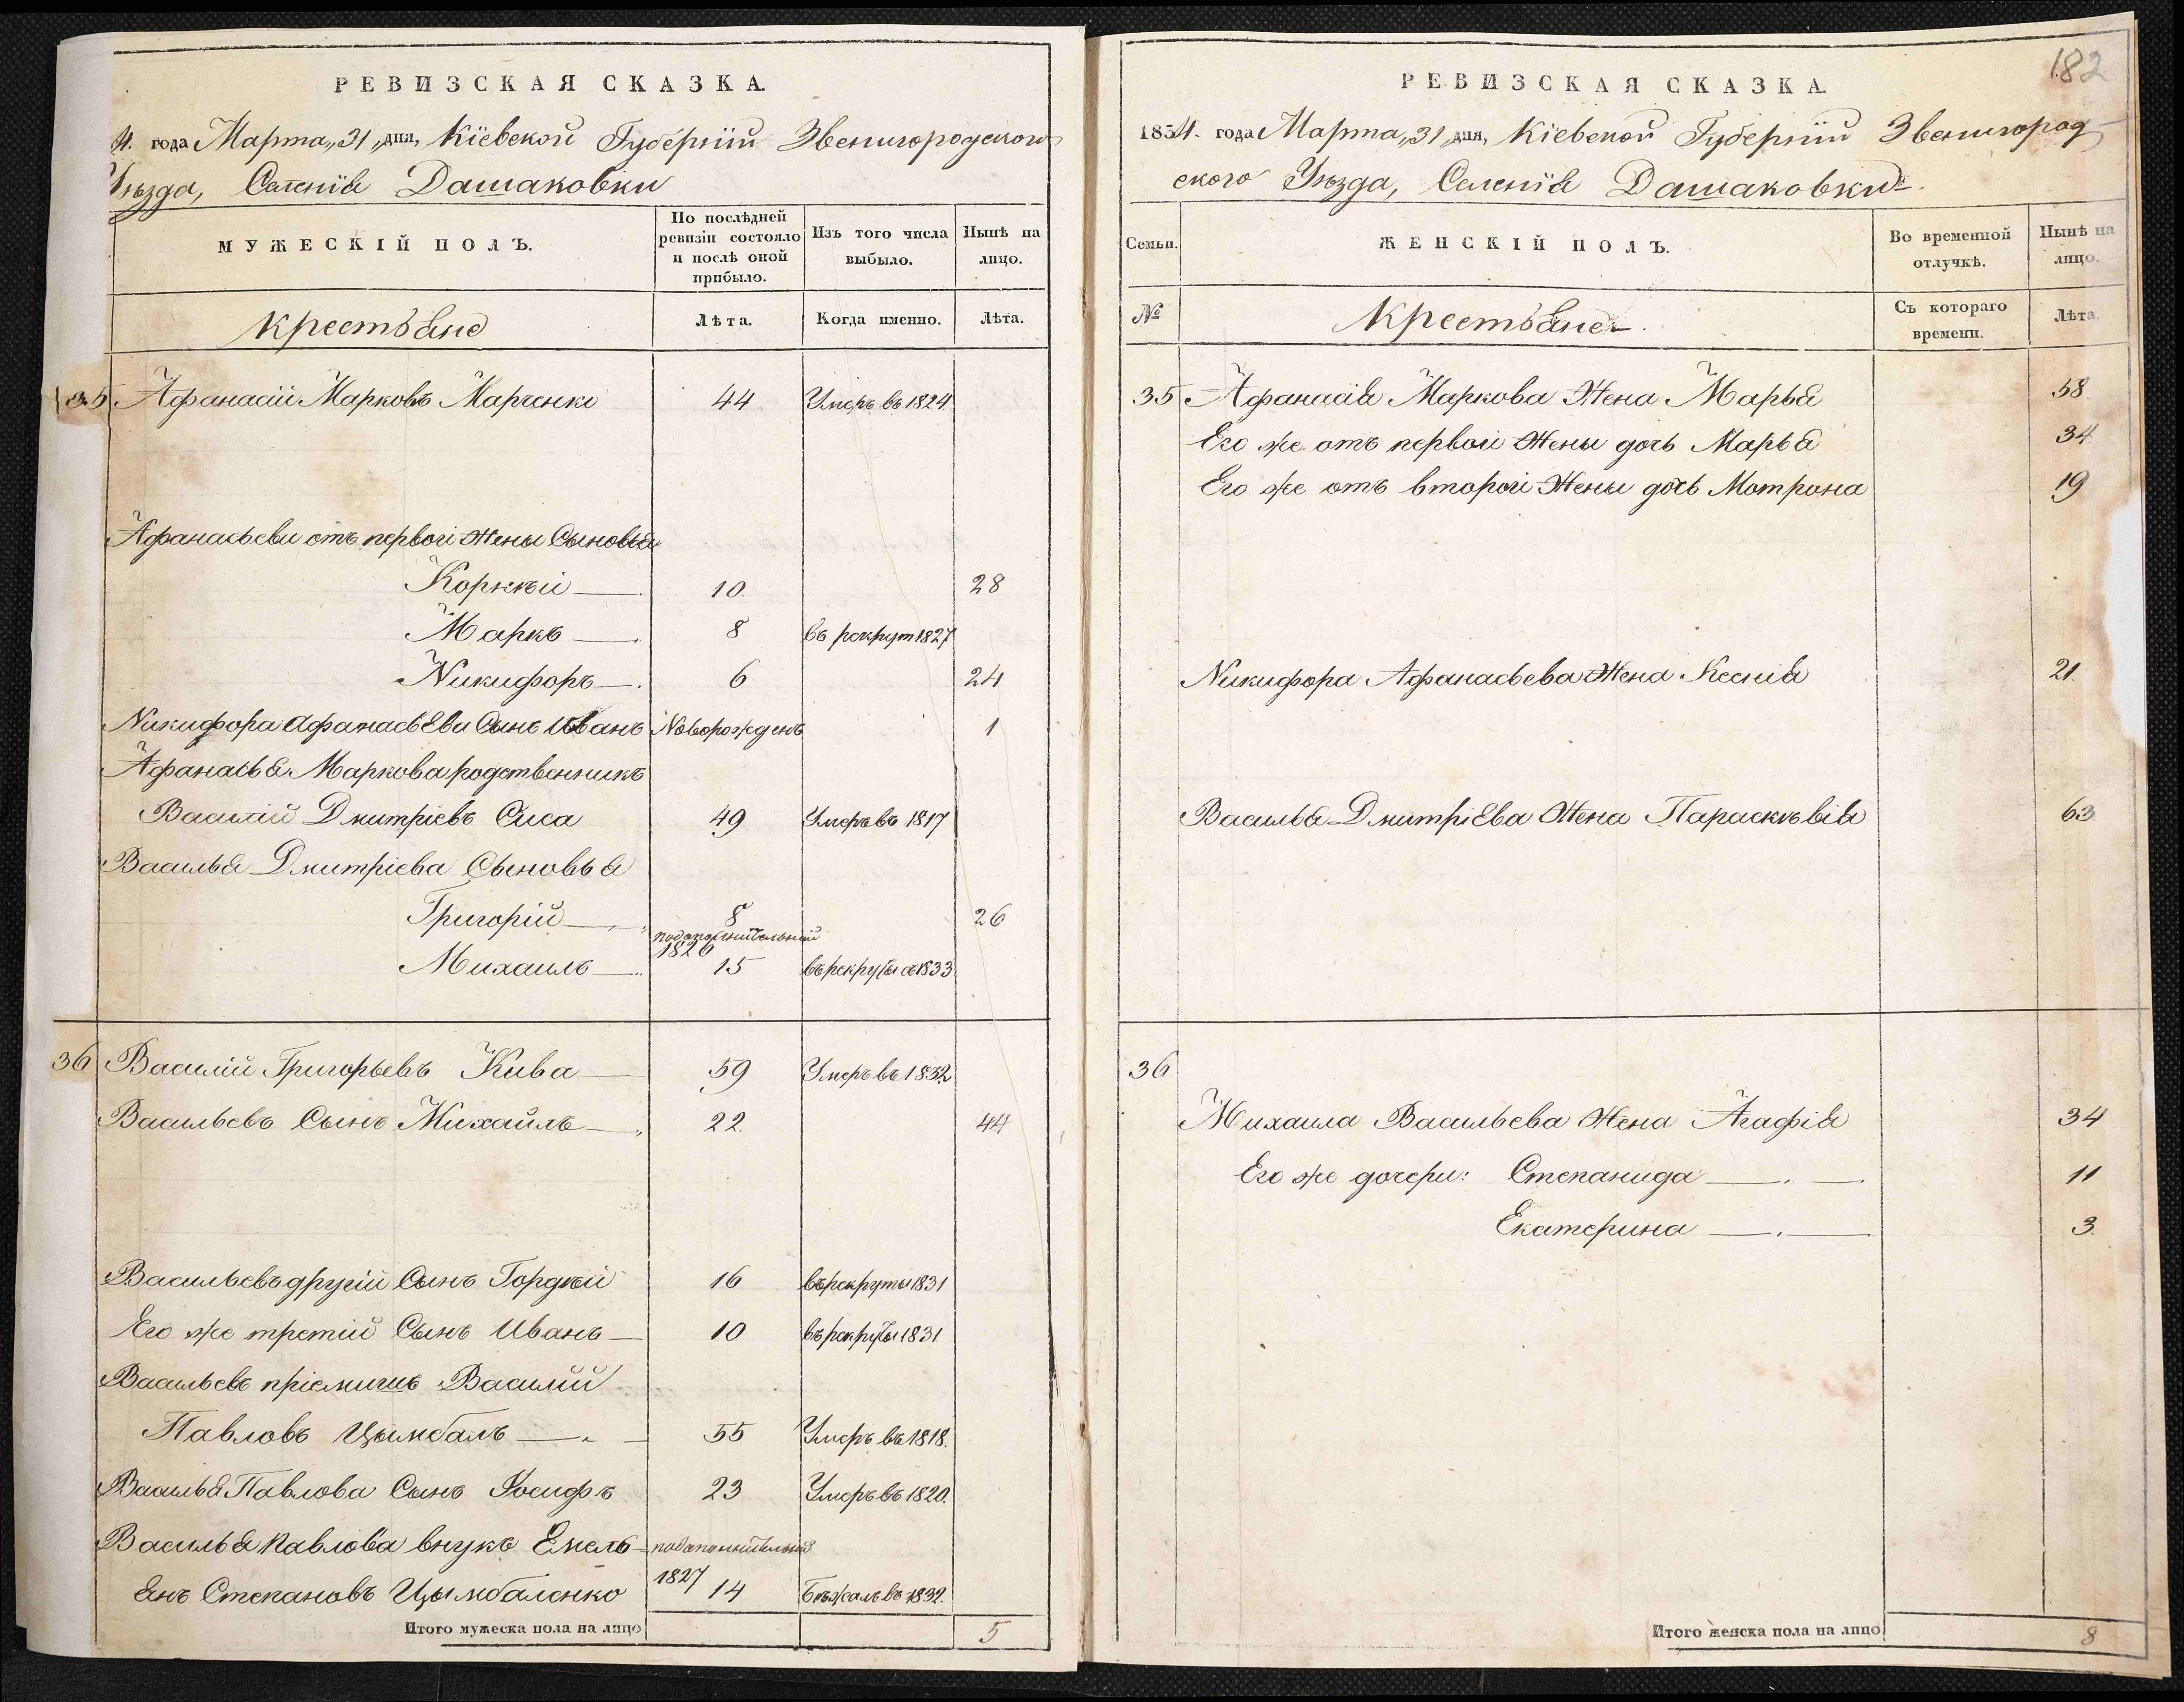 РЕВИЗСКАЯ СКАЗКА.
4. года Марта „31„ дня, Кіевской Губерніи Звенигородскои
Уѣзда, Селенія Дашаковки
МУЖЕСКІЙ ПОЛЪ.
По послѣдней ревизіи состояло и послѣ оной прибыло.
Изъ того числа выбыло.
Нынѣ на лицо.
Крестьяне
Лѣта.
Когда именно.
Лѣта.
35 Афанасій Марковъ Марченко 44 Умеръ въ 1824
Афанасьевы отъ первой жены Сыновья
Корнѣй 10 28
Маркъ 8 въ рекрут 1827
Никифоръ 6 24
Никифора Афанасьева Сынъ Иванъ Новорожденъ 1
Афанасья Маркова родственникъ
Василій Дмитріевъ Сиса 49 Умеръ въ 1817
Василья Дмитріева Сыновья
Григорій 8 26
подополнительной
1820
Михаилъ 15 въ рекруты въ 1833
36 Василій Григорьевъ Кива 59 Умеръ въ 1832
Васильевъ Сынъ Михайлъ 22. 44
Васильевъ другій Сынъ Гордѣй 16 въ рекруты 1831
Его же третій Сынъ Иванъ 10 въ рекруты 1831
Васильевъ пріемышъ Василій
Павловъ Цымбалъ 55 Умеръ въ 1818.
Василья Павлова Сынъ Іосифъ 23 Умеръ въ 1820.
Василья Павлова внукъ Емель- подополнительной
янъ Степановъ Цымбаленко 1827 14 Бѣжалъ въ 1832.
Итого мужеска пола на лицо 5
182
РЕВИЗСКАЯ СКАЗКА.
1834. года Марта „31„ дня, Кіевской Губерніи Звенигород-
ского Уѣзда, Селенія Дашаковки.
Семьи.
ЖЕНСКІЙ ПОЛЪ.
Во временной отлучкѣ.
Нынѣ на лицо.
№
Крестьяне.
Съ котораго времени.
Лѣта.
35 Афанасія Маркова Жена Марья 58
Его же отъ первой жены дочь Марья 34
Его же отъ второй жены дочь Мотрона 19
Никифора Афанасьева Жена Ксенія 21.
Василья Дмитріева Жена Параскѣвія 63
36
Михаила Васильева Жена Агафія 34
Его же дочери: Степанида 11
Екатерина 3.
Итого женска пола на лицо 8